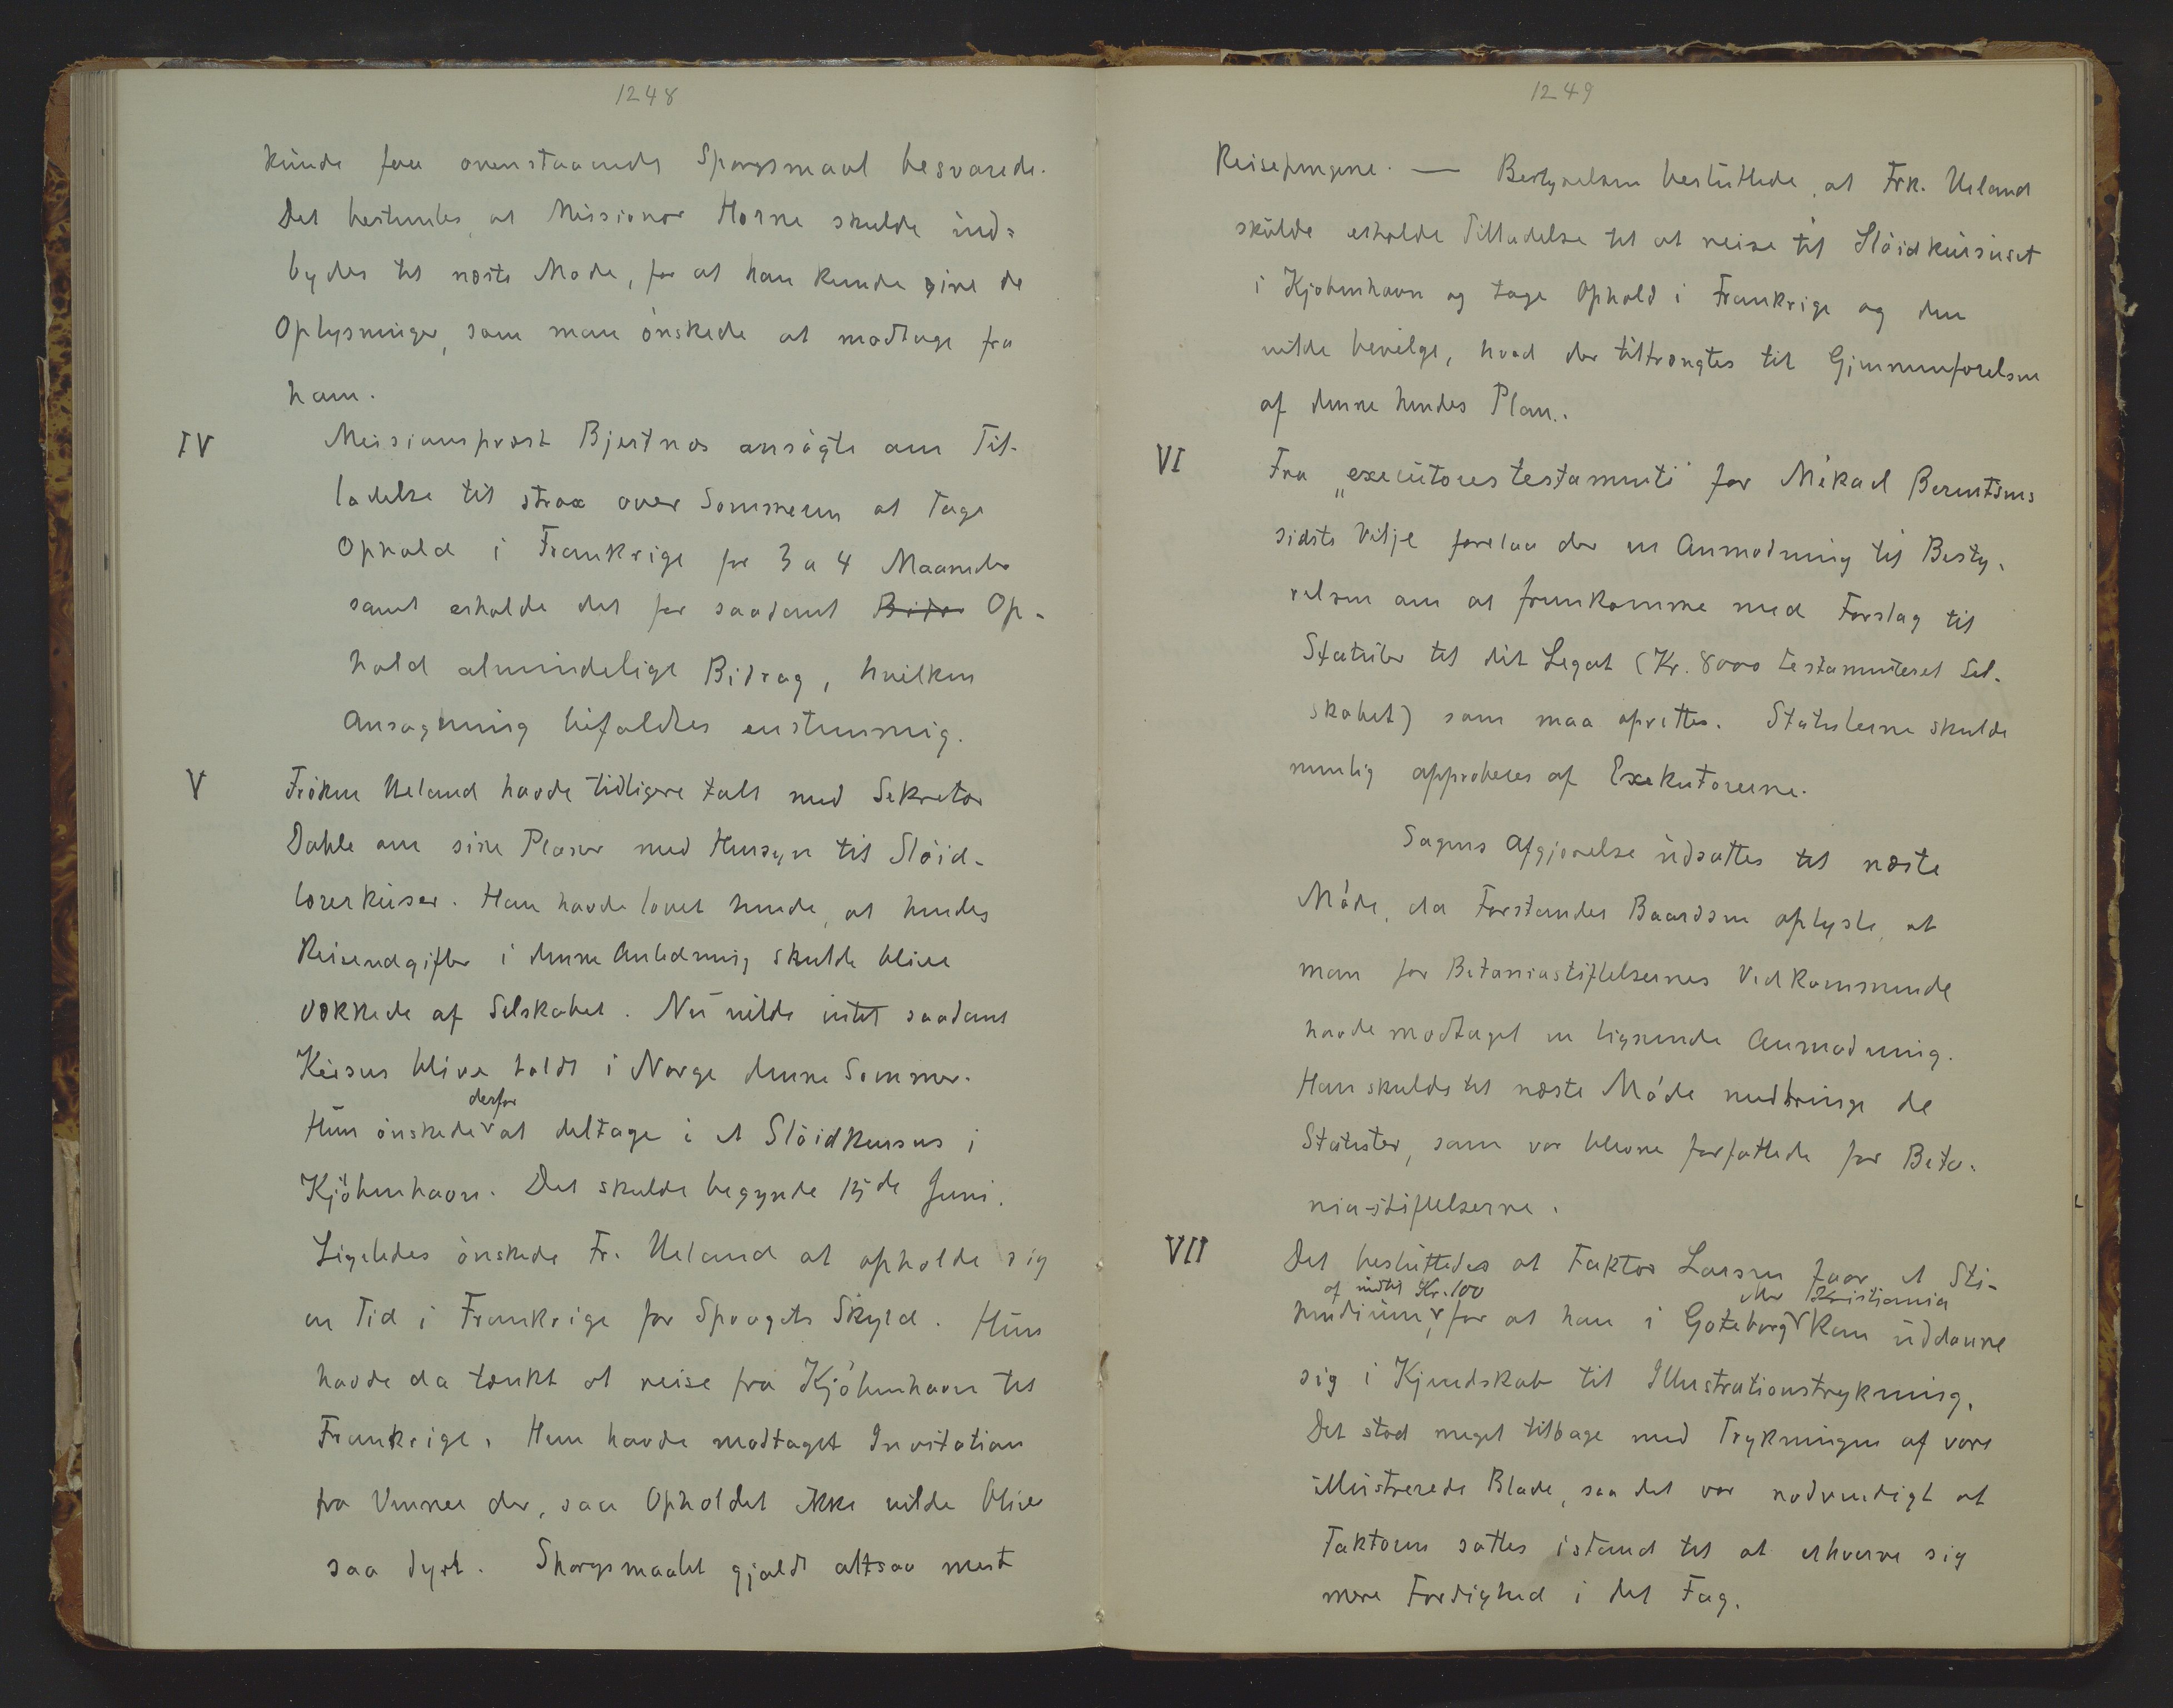 1248
kunde faa ovenstaaende Spørgsmaal besvarede.
Det bestemtes, at Missionær Horne skulde ind=
bydes til næste Møde, for at han kunde give de
Oplysninger, som man ønskede at modtage fra
ham.
IV Missionsprest Bjertnæs ansøgte om Til-
ladelse til strax over Sommeren at tage
Ophold i Frankrige for 3 a 4 Maaneder
samt erholde det for saadant Bidr Op-
hold almindelige Bidrag, hvilken
Ansøgning bifaldtes enstemmig.
V Frøken Ueland havde tidligere talt med Sekretær
Dahle om sine Planer med Hensyn til Sløid-
lærerkurser. Han havde lovet hende, at hendes
Reiseudgifter i denne Anledning skulde blive
dækkede af Selskabet. Nu vilde intet saadant
Kursus blive holdt i Norge denne Sommer.
Hun ønskede derfor at deltage i et Sløidkursus i
Kjøbenhavn. Det skulde begynde 15de Juni.
Ligeledes ønskede Fr. Ueland at opholde sig
en Tid i Frankrige for Sprogets Skyld. Hun
havde da tænkt at reise fra Kjøbenhavn til
Frankrige. Hun havde modtaget Invitation
fra Venner der, saa Opholdet ikke vilde blive
saa dyrt. Spørgsmaalet gjaldt altsaa mest
1249
Reisepengene. — Bestyrelsen besluttede, at Frk. Ueland
skulde erholde Tilladelse til at reise til Sløidkursuset
i Kjøbenhavn og tage Ophold i Frankrige og den
vilde bevilge, hvad der tiltrængtes til Gjennemførelsen
af denne hendes Plan.
VI Fra „executores testamenti" for Mikael Berentsens
sidste Vilje forelaa der en Anmodning til Besty-
relsen om at fremkomme med Forslag til
Statuter til dit Legat (Kr. 8000 testamenteret Sel-
skabet) som maa oprettes. Statuterne skulde
nemlig approberes af Exekutorerne.
Sagens Afgjørelse udsattes til næste
Møde, da Forstander Baardsen oplyste, at
man for Betaniastiftelsernes Vedkommende
havde modtaget en lignende Anmodning.
Han skulde til næste Møde medbringe de
Statuter, som var blevne forfattede for Beta-
nia-stiftelserne.
VII Det besluttedes at Faktor Larsen faar et Sti-
pendium af indtil Kr. 100, for at han i Gøteborg eller Kristiania kan uddanne
sig i Kjendskab til Illustrationstrykning.
Det stod meget tilbage med Trykningen af vore
illustrerede Blade, saa det var nødvendigt at
Faktoren sattes istand til at erhverve sig
mere Færdighed i det Fag.